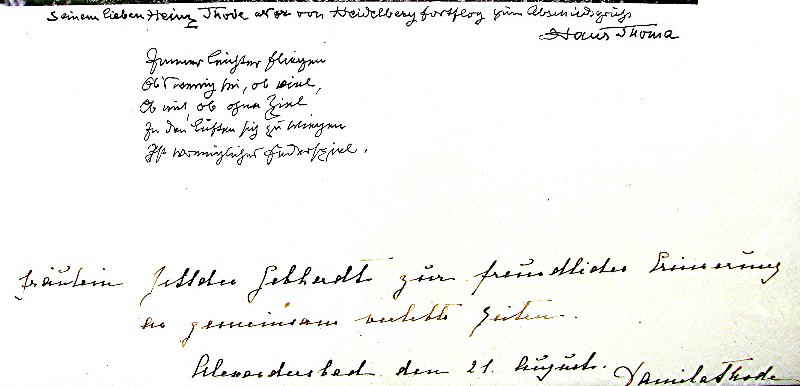 Seinem lieben Heinz Thode der von Heidelberg fortflog zum Abschiedsgruß
Hans Thoma
Immer leichter fliegen
Ob wenig sei, ob viel,
Ob mit, ob ohne Ziel
In den Lüften sich zu wiegen
Ist vergnügliches Federspiel.
Fräulein Gebherdt zur freundlichen Erinnerung
an gemeinsam verlebte Zeiten.
Alexandersbad den 21. August. Daniela Thode